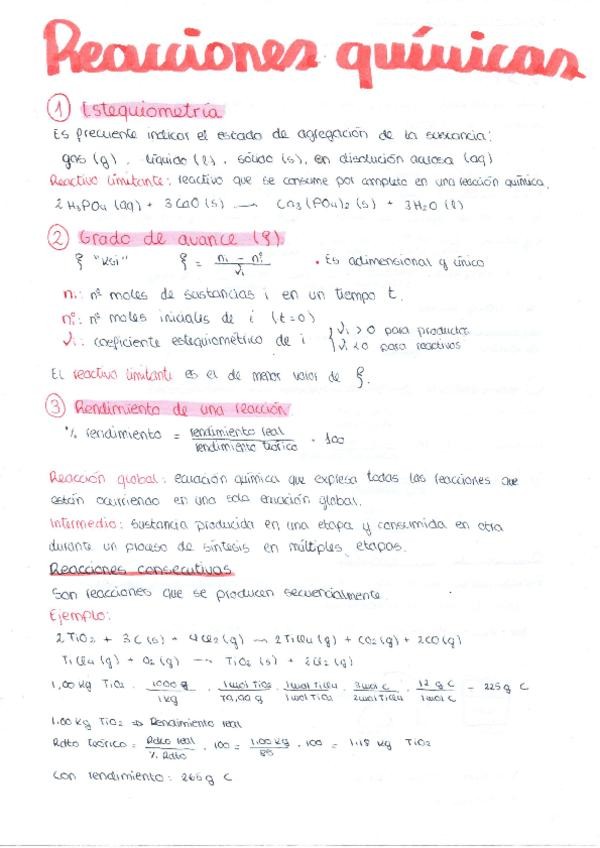 Reacciones químicas
① Estequiometría
Es frecuente indicar el estado de agregación de la sustancia:
gas (g), líquido (l), sólido (s), en disolución acuosa (aq)
Reactivo limitante: reactivo que se consume por completo en una reacción química.
2 H₃PO₄ (aq) + 3 CaO (s) → Ca₃(PO₄)₂ (s) + 3 H₂O (l)
② Grado de avance (ξ)
ξ "KSi" ξ = (nᵢ - nᵢ⁰) / νᵢ • Es adimensional y único
nᵢ: nº moles de sustancias i en un tiempo t.
nᵢ⁰: nº moles iniciales de i (t=0)
νᵢ: coeficiente estequiométrico de i { νᵢ > 0 para productos
νᵢ < 0 para reactivos
El reactivo limitante es el de menor valor de ξ.
③ Rendimiento de una reacción
% rendimiento = rendimiento real / rendimiento teórico · 100
Reacción global: ecuación química que expresa todas las reacciones que
están ocurriendo en una sola ecuación global.
Intermedio: sustancia producida en una etapa y consumida en otra
durante un proceso de síntesis en múltiples etapas.
Reacciones consecutivas
Son reacciones que se producen secuencialmente.
Ejemplo:
2 TiO₂ + 3 C (s) + 4 Cl₂ (g) → 2 TiCl₄ (g) + CO₂ (g) + 2 CO (g)
TiCl₄ (g) + O₂ (g) → TiO₂ (s) + 2 Cl₂ (g)
1,00 kg TiO₂ · 1000 g / 1 kg · 1 mol TiO₂ / 79,90 g · 1 mol TiCl₄ / 1 mol TiO₂ · 3 mol C / 2 mol TiCl₄ · 12 g C / 1 mol C = 225 g C
1.00 kg TiO₂ ⇒ Rendimiento real
Rdto teórico = Rdto real / % Rdto · 100 = 1.00 kg / 85 · 100 = 1.18 kg TiO₂
Con rendimiento: 265 g C